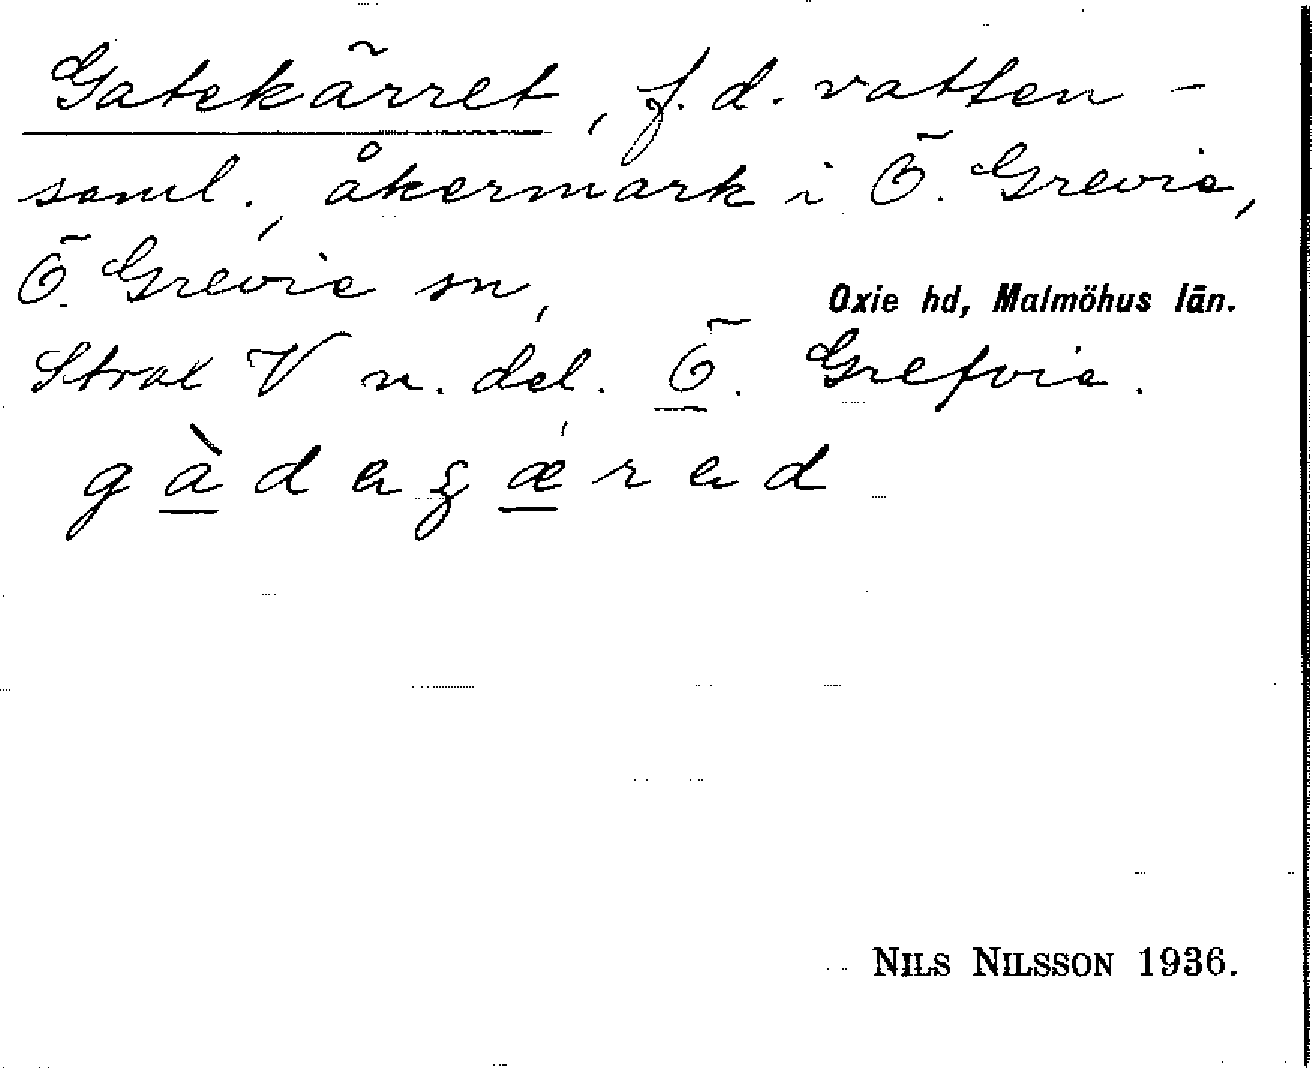 Gatekärret, f.d. vatten-
saml., åkermark i Ö. Grevie,
Ö. Grevie sn,
Oxie hd, Malmöhus län.
Strax V n. del. Ö. Grefvie.
gàdagǽrad
NILS NILSSON 1936.